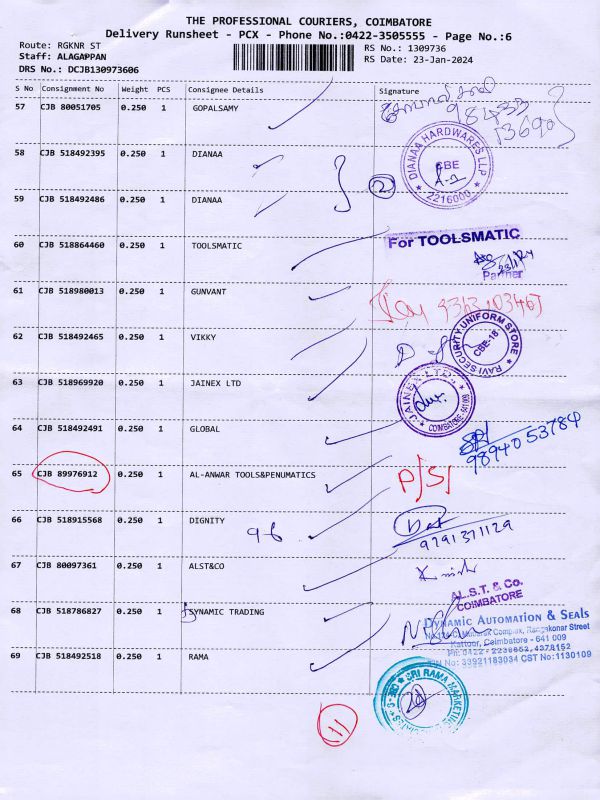 THE PROFESSIONAL COURIERS, COIMBATORE
Delivery Runsheet - PCX - Phone No.:0422-3505555 - Page No.:6
Route: RGKNR ST RS No.: 1309736
Staff: ALAGAPPAN RS Date: 23-Jan-2024
DRS No.: DCJB130973606
S No Consignment No Weight PCS Consignee Details Signature
57 CJB 80051705 0.250 1 GOPALSAMY
98433
13690
58 CJB 518492395 0.250 1 DIANAA
DIANAA HARDWARES LLP
CBE
2216000
2
59 CJB 518492486 0.250 1 DIANAA
60 CJB 518864460 0.250 1 TOOLSMATIC
For TOOLSMATIC
Partner
61 CJB 518980013 0.250 1 GUNVANT
62 CJB 518492465 0.250 1 VIKKY
RAVI SECURITY UNIFORM STORE
CBE-18
63 CJB 518969920 0.250 1 JAINEX LTD
JAINEX LTD.,
COIMBATORE
64 CJB 518492491 0.250 1 GLOBAL
98940 53784
65 CJB 89976912 0.250 1 AL-ANWAR TOOLS&PENUMATICS
P/S/
66 CJB 518915568 0.250 1 DIGNITY
96
9791371129
67 CJB 80097361 0.250 1 ALST&CO
AL.S.T. & Co.
COIMBATORE
68 CJB 518786827 0.250 1 SYNAMIC TRADING
DYNAMIC AUTOMATION & SEALS
Complex, Rangakonar Street
Kattoor, Coimbatore - 641 009
Ph: 0422 - 2236652, 4378152
TIN No: 33921183034 CST No: 1130109
69 CJB 518492518 0.250 1 RAMA
SRI RAMA MARKETING
11